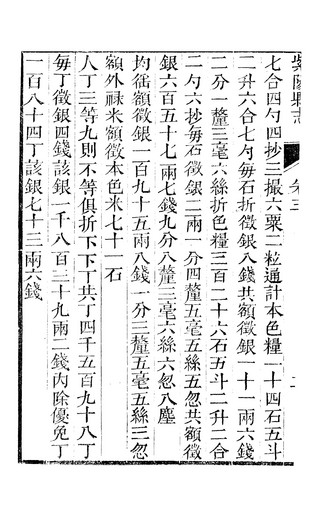 紫陽縣志 卷三
七合四勺四抄三撮六粟二粒通計本色糧一十四石五斗
二升六合七勺每石折徵銀八錢共額徵銀一十一兩六錢
二分一釐三毫六絲折色糧三百二十六石五斗二升二合
二勺六抄每石徵銀二兩一分四釐五毫五絲五忽共額徵
銀六百五十七兩七錢九分八釐三毫六絲六忽八塵
均徭額徵銀一百九十五兩八錢一分三釐五毫五絲三忽
額外祿米額徵本色米七十一石
人丁三等九則不等俱折下下丁共丁四千五百九十八丁
每丁徵銀四錢該銀一千八百三十九兩二錢內除優免丁
一百八十四丁該銀七十三兩六錢